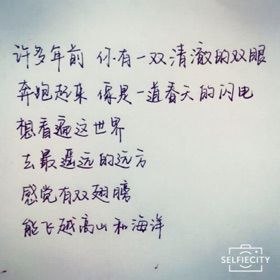 许多年前 你有一双清澈的双眼
奔跑起来 像是一道春天的闪电
想看遍这世界
去最遥远的远方
感觉有双翅膀
能飞越高山和海洋
SELFIECITY